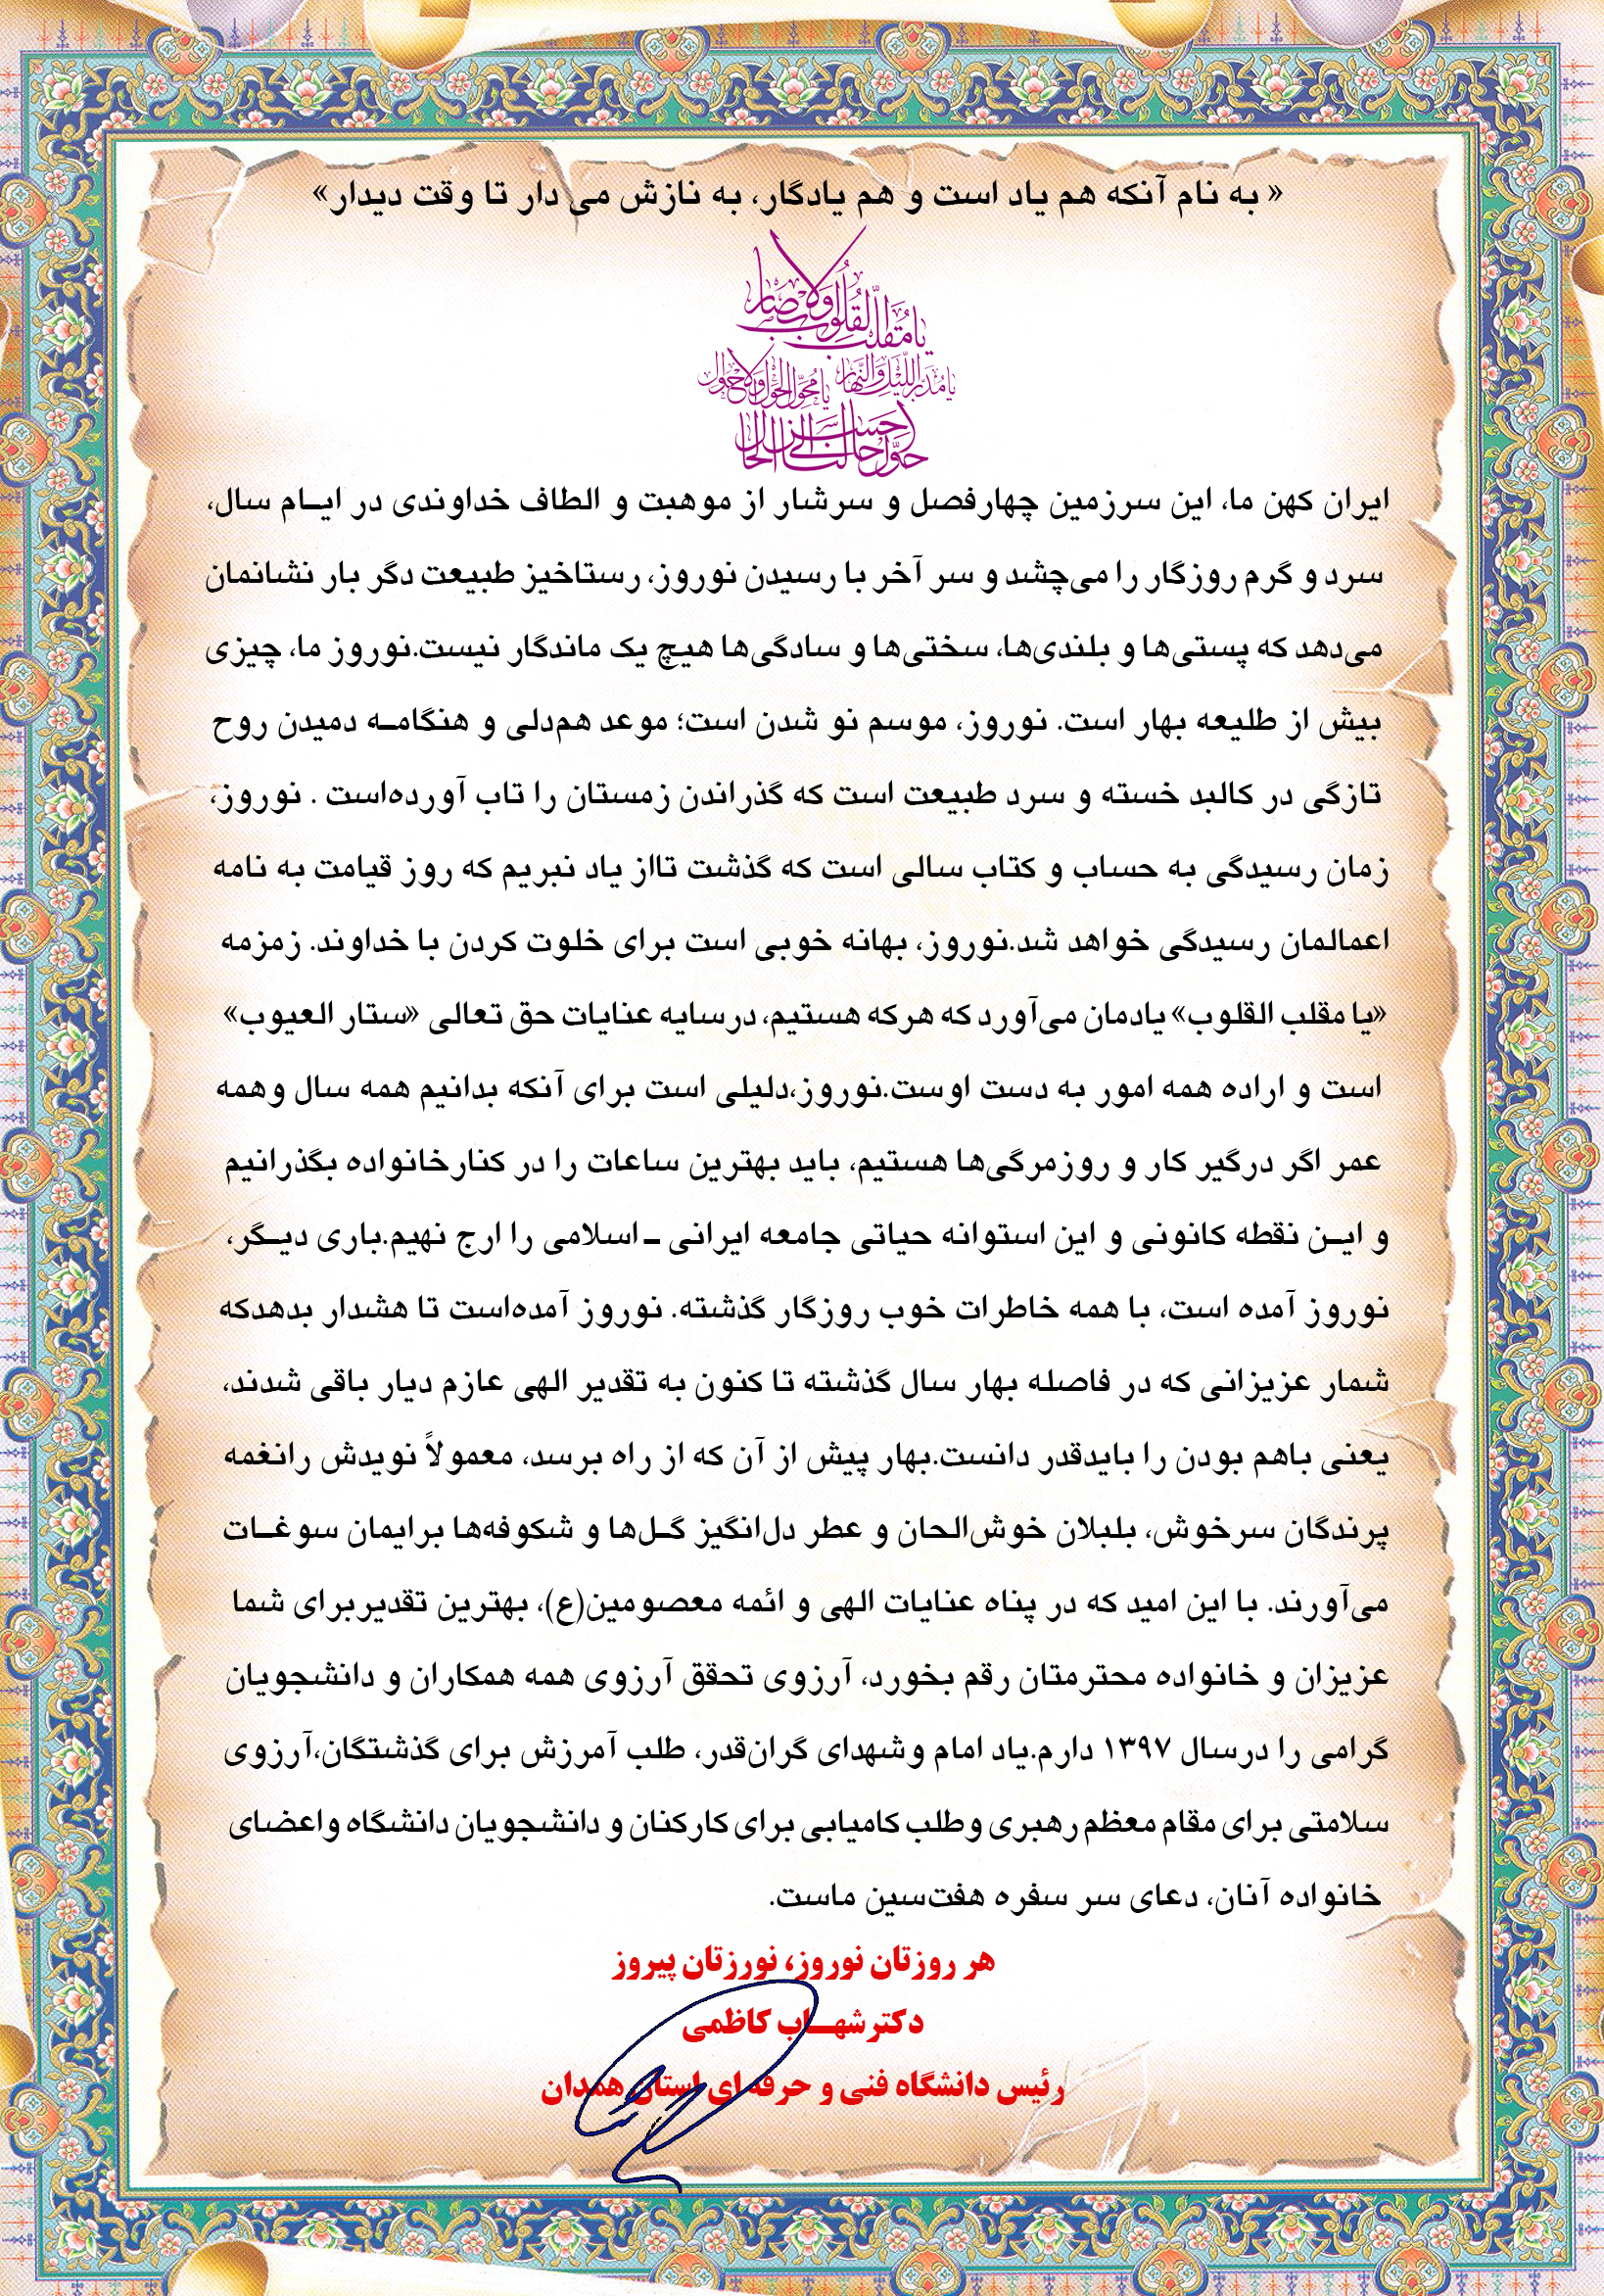 « به نام آنکه هم یاد است و هم یادگار، به نازش می دار تا وقت دیدار»
یا مُقَلِّبَ القُلُوبِ وَالاَبصَار
یا مُدَبِّرَ اللَّیلِ وَالنَّهَار یا مُحَوِّلَ الحَولِ وَالاَحوَال
حَوِّل حَالَنَا اِلی اَحسَنِ الحَال
ایران کهن ما، این سرزمین چهارفصل و سرشار از موهبت و الطاف خداوندی در ایـام سال،
سرد و گرم روزگار را می‌چشد و سر آخر با رسیدن نوروز، رستاخیز طبیعت دگر بار نشانمان
می‌دهد که پستی‌ها و بلندی‌ها، سختی‌ها و سادگی‌ها هیچ یک ماندگار نیست.نوروز ما، چیزی
بیش از طلیعه بهار است. نوروز، موسم نو شدن است؛ موعد هم‌دلی و هنگامـه دمیدن روح
تازگی در کالبد خسته و سرد طبیعت است که گذراندن زمستان را تاب آورده‌است . نوروز،
زمان رسیدگی به حساب و کتاب سالی است که گذشت تااز یاد نبریم که روز قیامت به نامه
اعمالمان رسیدگی خواهد شد.نوروز، بهانه خوبی است برای خلوت کردن با خداوند. زمزمه
«یا مقلب القلوب» یادمان می‌آورد که هرکه هستیم، درسایه عنایات حق تعالی «ستار العیوب»
است و اراده همه امور به دست اوست.نوروز،دلیلی است برای آنکه بدانیم همه سال وهمه
عمر اگر درگیر کار و روزمرگی‌ها هستیم، باید بهترین ساعات را در کنارخانواده بگذرانیم
و ایـن نقطه کانونی و این استوانه حیاتی جامعه ایرانی ـ اسلامی را ارج نهیم.باری دیـگر،
نوروز آمده است، با همه خاطرات خوب روزگار گذشته. نوروز آمده‌است تا هشدار بدهدکه
شمار عزیزانی که در فاصله بهار سال گذشته تا کنون به تقدیر الهی عازم دیار باقی شدند،
یعنی باهم بودن را بایدقدر دانست.بهار پیش از آن که از راه برسد، معمولاً نویدش رانغمه
پرندگان سرخوش، بلبلان خوش‌الحان و عطر دل‌انگیز گـل‌ها و شکوفه‌ها برایمان سوغـات
می‌آورند. با این امید که در پناه عنایات الهی و ائمه معصومین(ع)، بهترین تقدیربرای شما
عزیزان و خانواده محترمتان رقم بخورد، آرزوی تحقق آرزوی همه همکاران و دانشجویان
گرامی را درسال ۱۳۹۷ دارم.یاد امام وشهدای گران‌قدر، طلب آمرزش برای گذشتگان،آرزوی
سلامتی برای مقام معظم رهبری وطلب کامیابی برای کارکنان و دانشجویان دانشگاه واعضای
خانواده آنان، دعای سر سفره هفت‌سین ماست.
هر روزتان نوروز، نورزتان پیروز
دکترشهـاب کاظمی
رئیس دانشگاه فنی و حرفه ای استان همدان